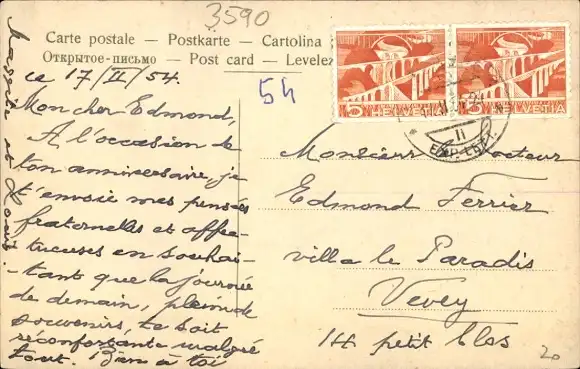 3590
Carte postale — Postkarte — Cartolina
Открытое-письмо — Post card — Levelez
5 HELVETIA 5 HELVETIA
ce 17/II/54.
54
Mon cher Edmond,
A l'occasion de
ton anniversaire, je
t'envoie mes pensées
fraternelles et affec-
tueuses en souhai-
tant que la journée
de demain, pleine de
souvenirs, te soit
réconfortante malgré
tout. Bien à toi
et Louis.
Monsieur le Docteur
Edmond Ferrier
villa le Paradis
Vevey
14 petit Clos
20